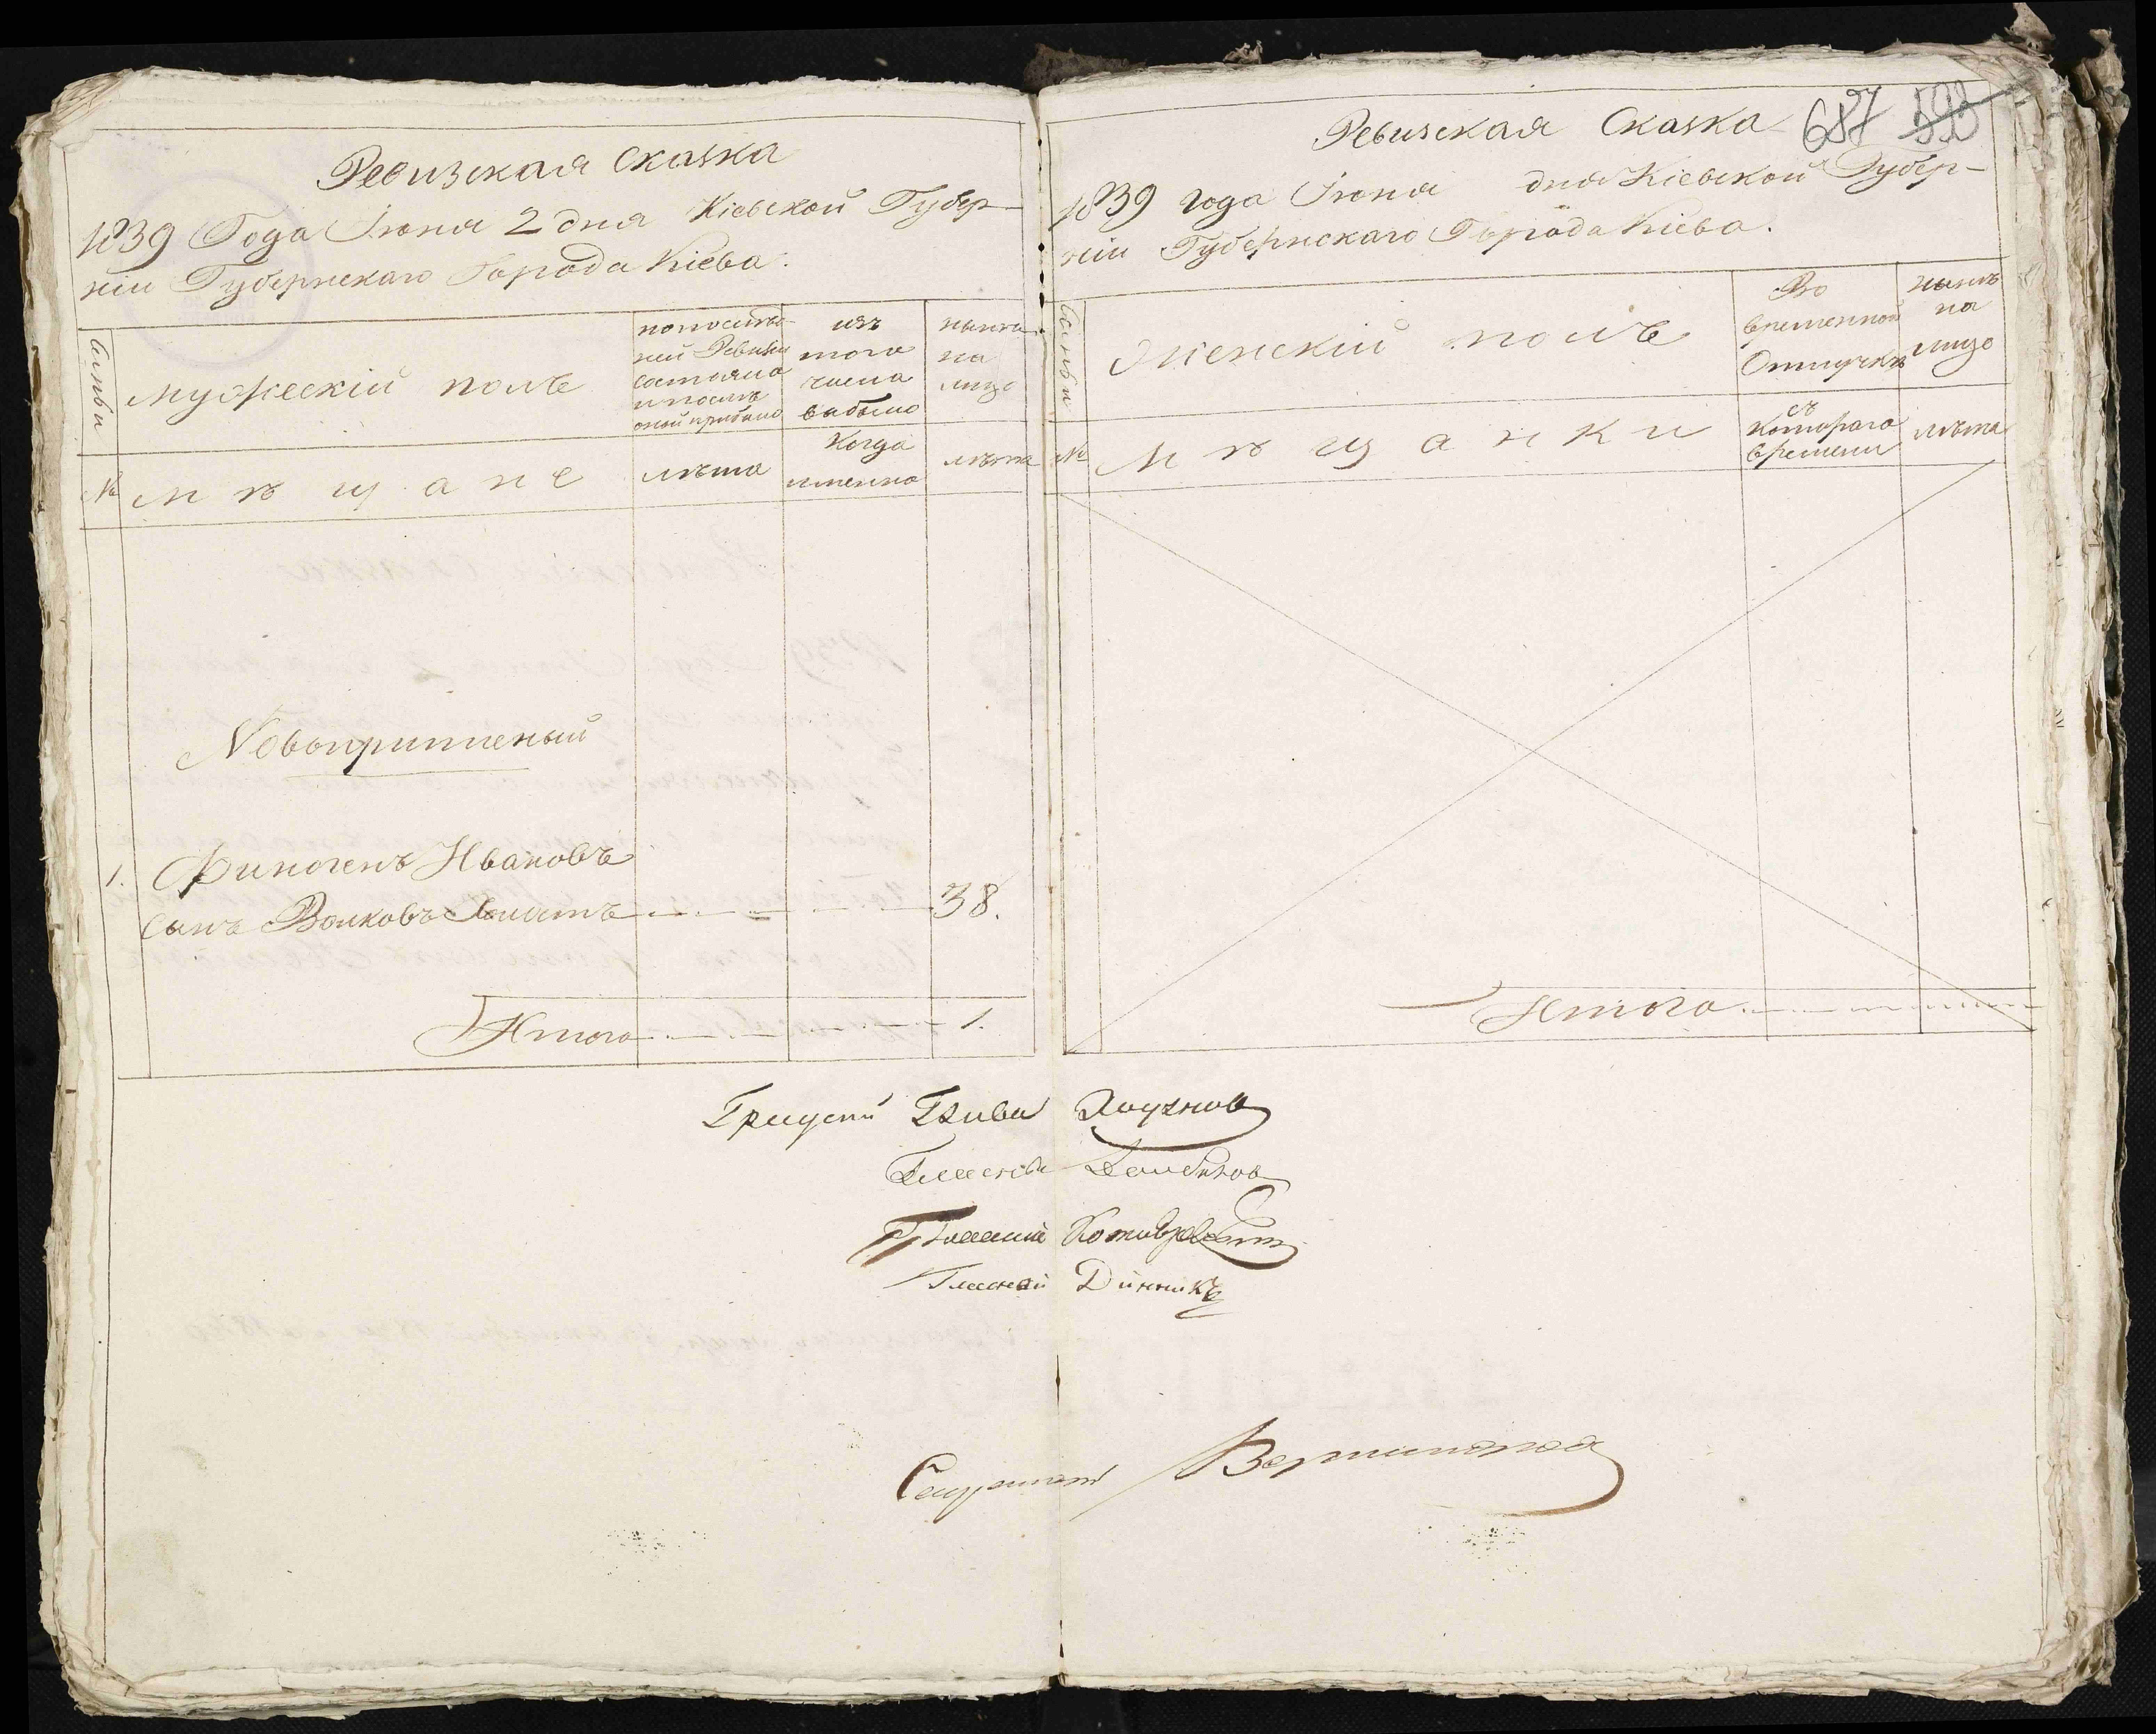 Ревизская Сказка
1839 Года Іюня 2 дня Кіевской Губер-
ніи Губернскаго Города Кіева.
Семьи
мужескій полъ
по послѣд-
ней Ревизіи
состояло
и послѣ
оной прибыло
изъ
того
числа
выбыло
нынѣ
на
лицо
№
мѣщане
лѣта
Когда
именно
лѣта
Новоприписный
1. Финогенъ Ивановъ
сынъ Волковъ 38.
Итого 1.
687 593
Ревизская Сказка
1839 года Іюня дня Кіевской Губер-
ніи Губернскаго Города Кіева.
Семьи
Женскій полъ
Во
временной
Отлучкѣ
нынѣ
на
лицо
№
Мѣщанки
съ
Котораго
времени
лѣта
Итого
Градской Глава
Гласный
Гласный
Гласный Динникъ
Секретарь